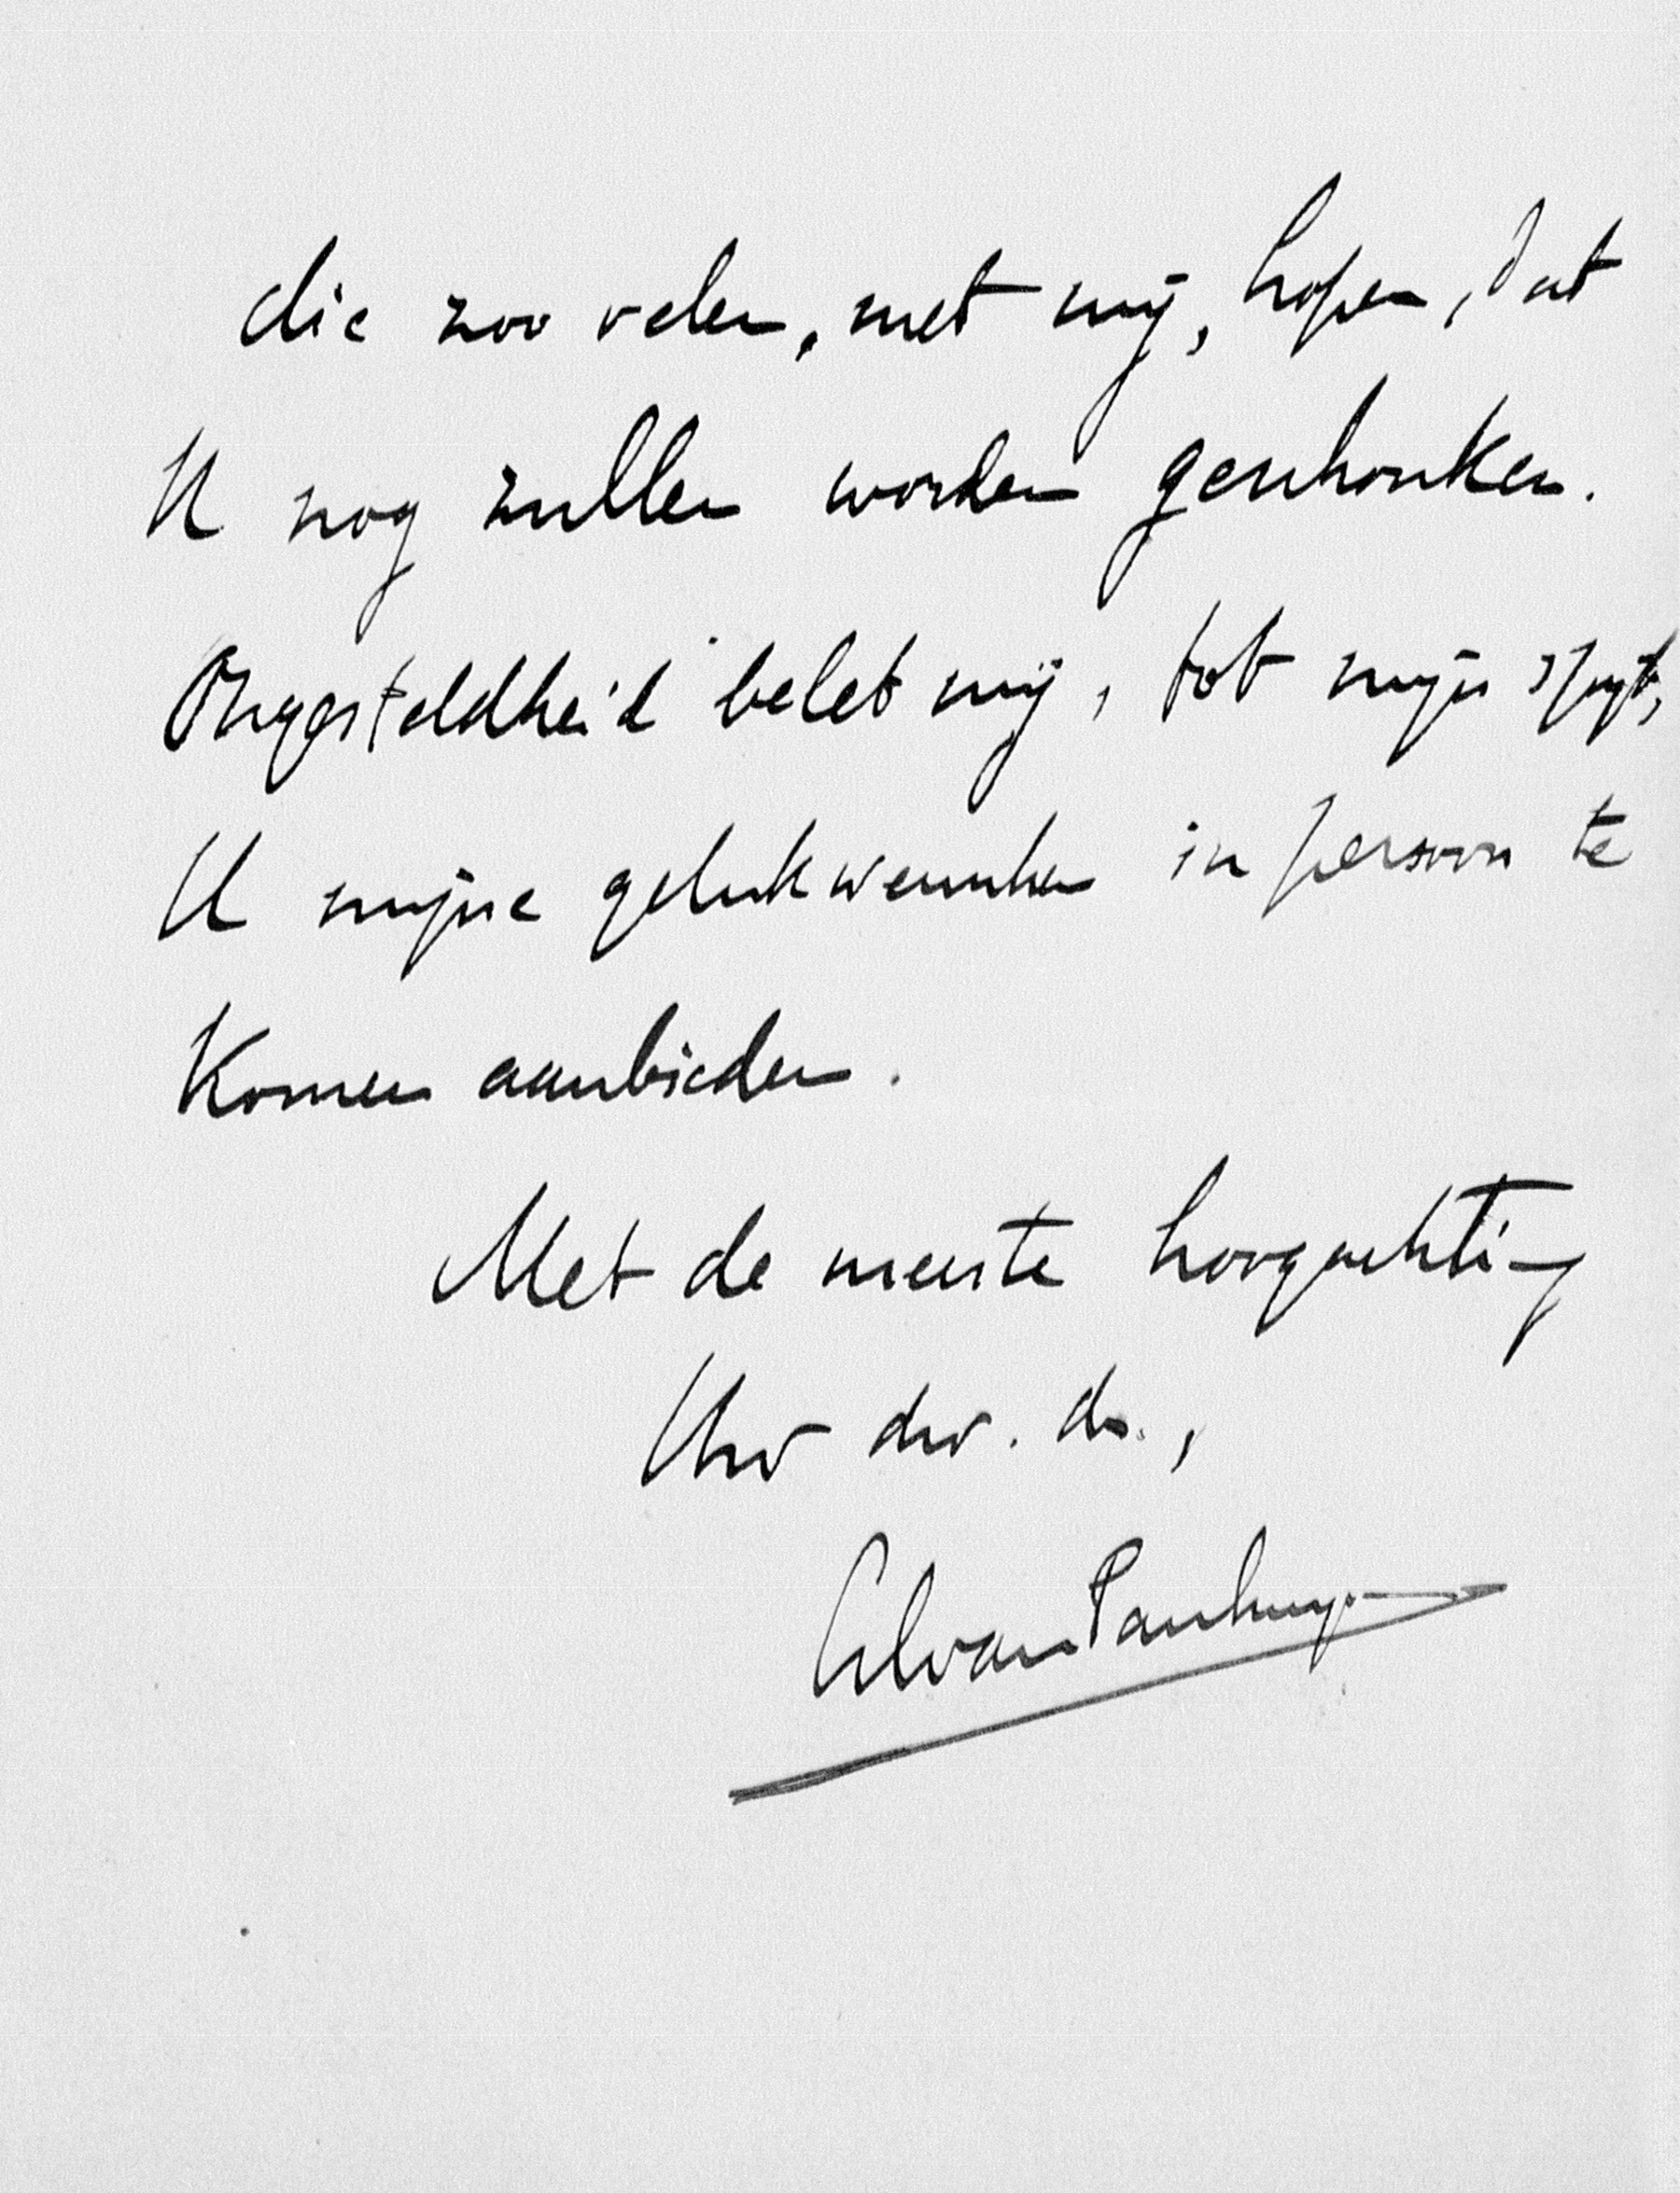 die zoo velen, met mij, hopen, dat
U nog zullen worden geschonken.
Ongesteldheid belet mij, tot mijn spijt,
U mijne gelukwenschen in persoon te
komen aanbieden.
Met de meeste hoogachting
Uw dw. dr.,
van Panhuys